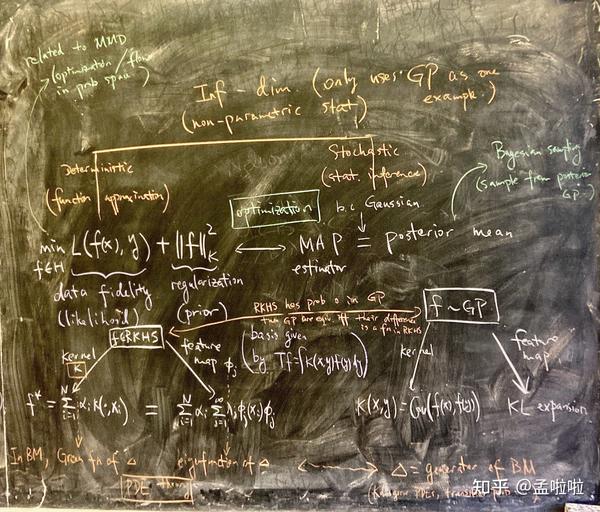 related to MMD
(optimization / flow
in prob space)
Inf-dim. (only uses GP as one
example.)
(non-parametric stat)
Deterministic
(function approximation)
Stochastic
(stat. inference)
Bayesian sampling
(sample from posterior
GP.)
optimization
b.c. Gaussian
min L(f(x), y) + ||f||²_K ⟷ MAP = posterior mean
f∈H
estimator
data fidelity
(likelihood)
regularization
(prior)
RKHS has prob 0 in GP
two GP are equiv. iff their difference
is a fn in RKHS
f ~ GP
f∈RKHS
kernel
K
feature
map ϕj
(basis given
by Tf=∫K(x,y)f(y)dy)
kernel
feature
map
f* = Σ_{i=1}^N αi K(·,xi) = Σ_{i=1}^N αi Σ_{j=1}^∞ λj ϕj(xi) ϕj
K(x,y) = Cov(f(x), f(y))
KL expansion
In BM, Green fn of Δ
eigenfunction of Δ
Δ = generator of BM
PDE theory
知乎 @孟啦啦